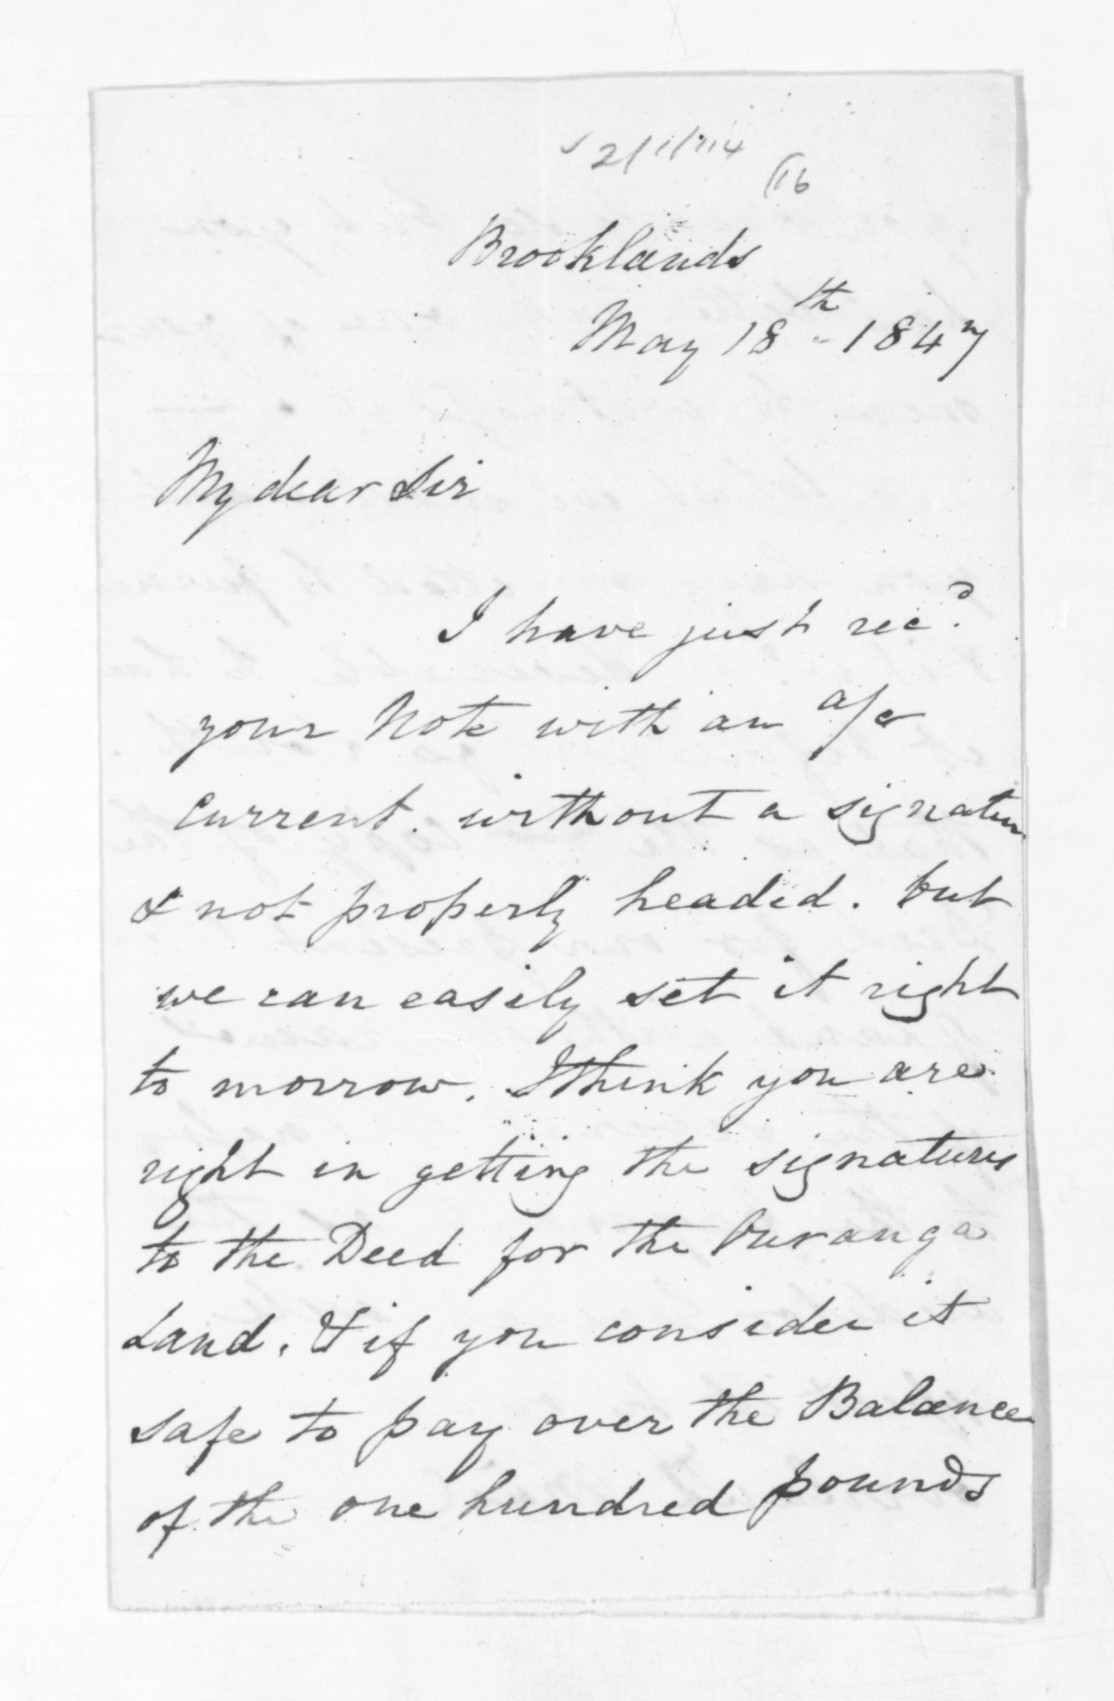 (16
Brooklands
May 18th - 1847
My dear Sir
I have just recd.
your Note with an a/c
Current. without a signature
& not properly headed. but
we can easily set it right
to morrow. I think you are
right in getting the signatures
to the Deed for the
Land. & if you consider it
safe to pay over the Balance
of the one hundred pounds